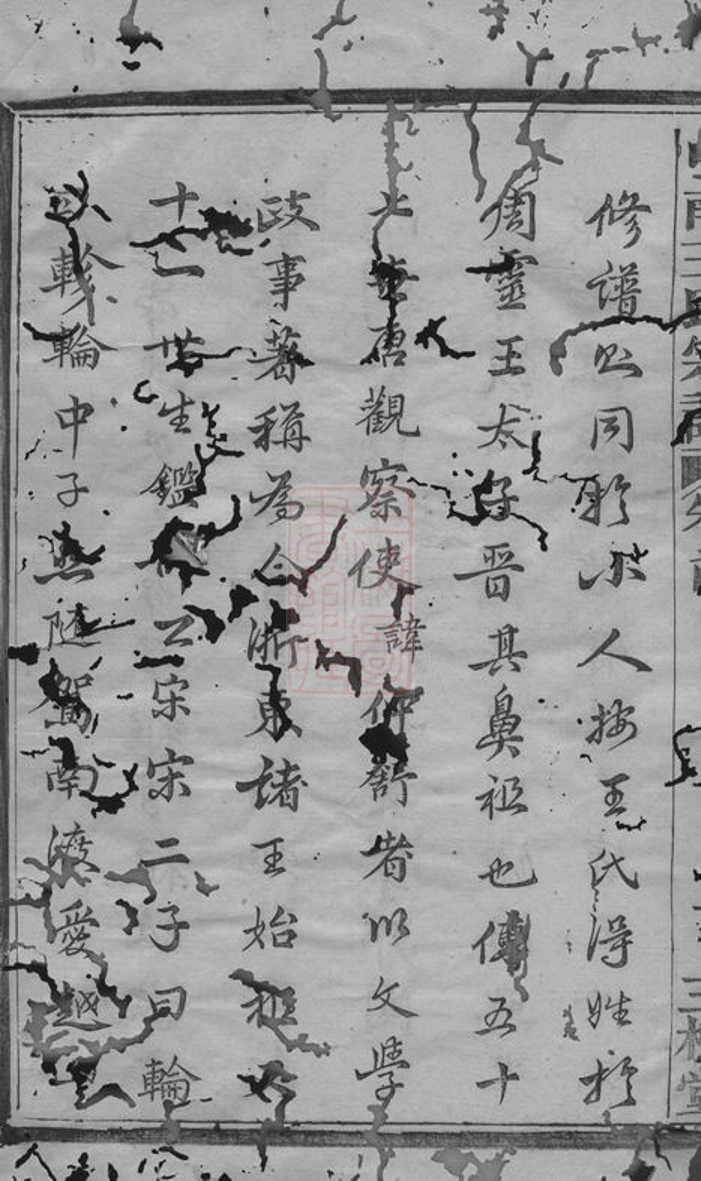 修譜則同於小人按王氏得姓於
周靈王太子晉其鼻祖也傳五十
七世唐觀察使諱仲舒者以文學
政事著稱為今浙東諸王始祖
十一世生鑑 公宋宋二子曰輪
曰輚輪中子 隨駕南渡愛越
三槐堂